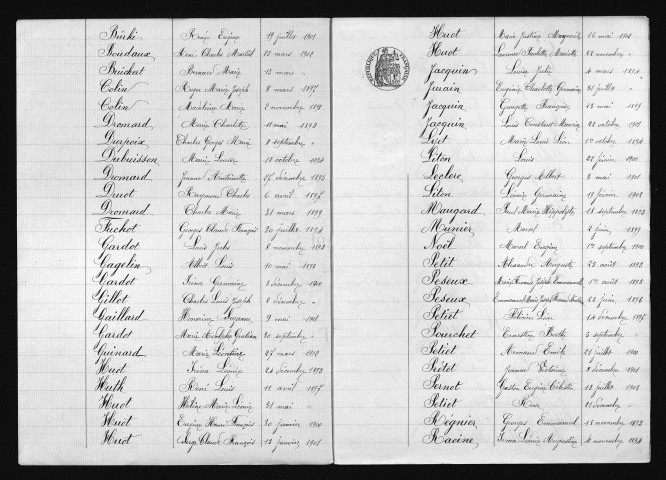 Büski Eugène 19 juillet 1901
Boudaux Charles 23 mars 1902
Bernard Marie 13 mars "
Colin Marie Joseph 8 mars 1897
Colin Madeleine Marie 2 novembre 1898
Dromard Marie Charlotte 11 mai 1893
Durpoix Charles Georges Marie 8 septembre "
Dubuisson Marie Louise 11 octobre 1894
Dromard Jeanne Antoinette 17 décembre 1895
Druot Raymond Charles 6 avril 1897
Dromard Charles Marie 31 mars 1899
Fuchot Georges Claude François 30 juillet 1894
Gardot Louis Jules 8 novembre 1893
Gagelin Albert Louis 10 mai 1898
Gardot Irène Germaine 3 décembre 1900
Gillot Charles Louis Joseph 8 décembre "
Gaillard Honorine Suzanne 9 mai 1901
Gardot Marie 20 septembre "
Guinard Marie Léontine 27 mars 1902
Huot Irène Léonie 24 décembre 1893
Huth René Louis 11 avril 1897
Huot Marie Léonie 31 mai "
Huot Eugène Henri François 30 janvier 1900
Huot Claude François 13 janvier 1901
Huot Marie Justine Marguerite 16 mai 1901
Huot Laurence Paulette Mariette 22 novembre "
Jacquin Louise Julie 4 mars 1894
Jurain Eugénie Charlotte Germaine 31 juillet "
Jacquin Georgette Françoise 23 mai 1899
Jacquin Louis Constant Maurice 22 octobre 1901
Liet Marie Louis Léon 1er octobre 1894
Liton Louis 22 février 1900
Leclerc Georges Albert 3 mai 1901
Liton Léonie Germaine 19 février 1902
Maugard Paul Marie Hippolyte 18 septembre 1893
Munier Marcel 2 juin 1899
Noël Marcel Eugène 1er septembre 1900
Petit Alexandre Auguste 23 août 1893
Peseux Marie Joseph Emmanuelle 1er août 1895
Peseux Emmanuel Marie Joseph 22 juin 1896
Petiot Léon 14 décembre 1897
Pourchet Ernestine Berthe 3 septembre "
Petiet Armand Emile 21 juillet 1900
Prétot Jeanne Victorine 8 décembre 1901
Pernot Gaston Eugène Célestin 12 juillet 1902
Petiot Rose 21 décembre "
Régnier Georges Emmanuel 15 novembre 1893
Racine Irma Léonie Augustine 4 novembre 1894